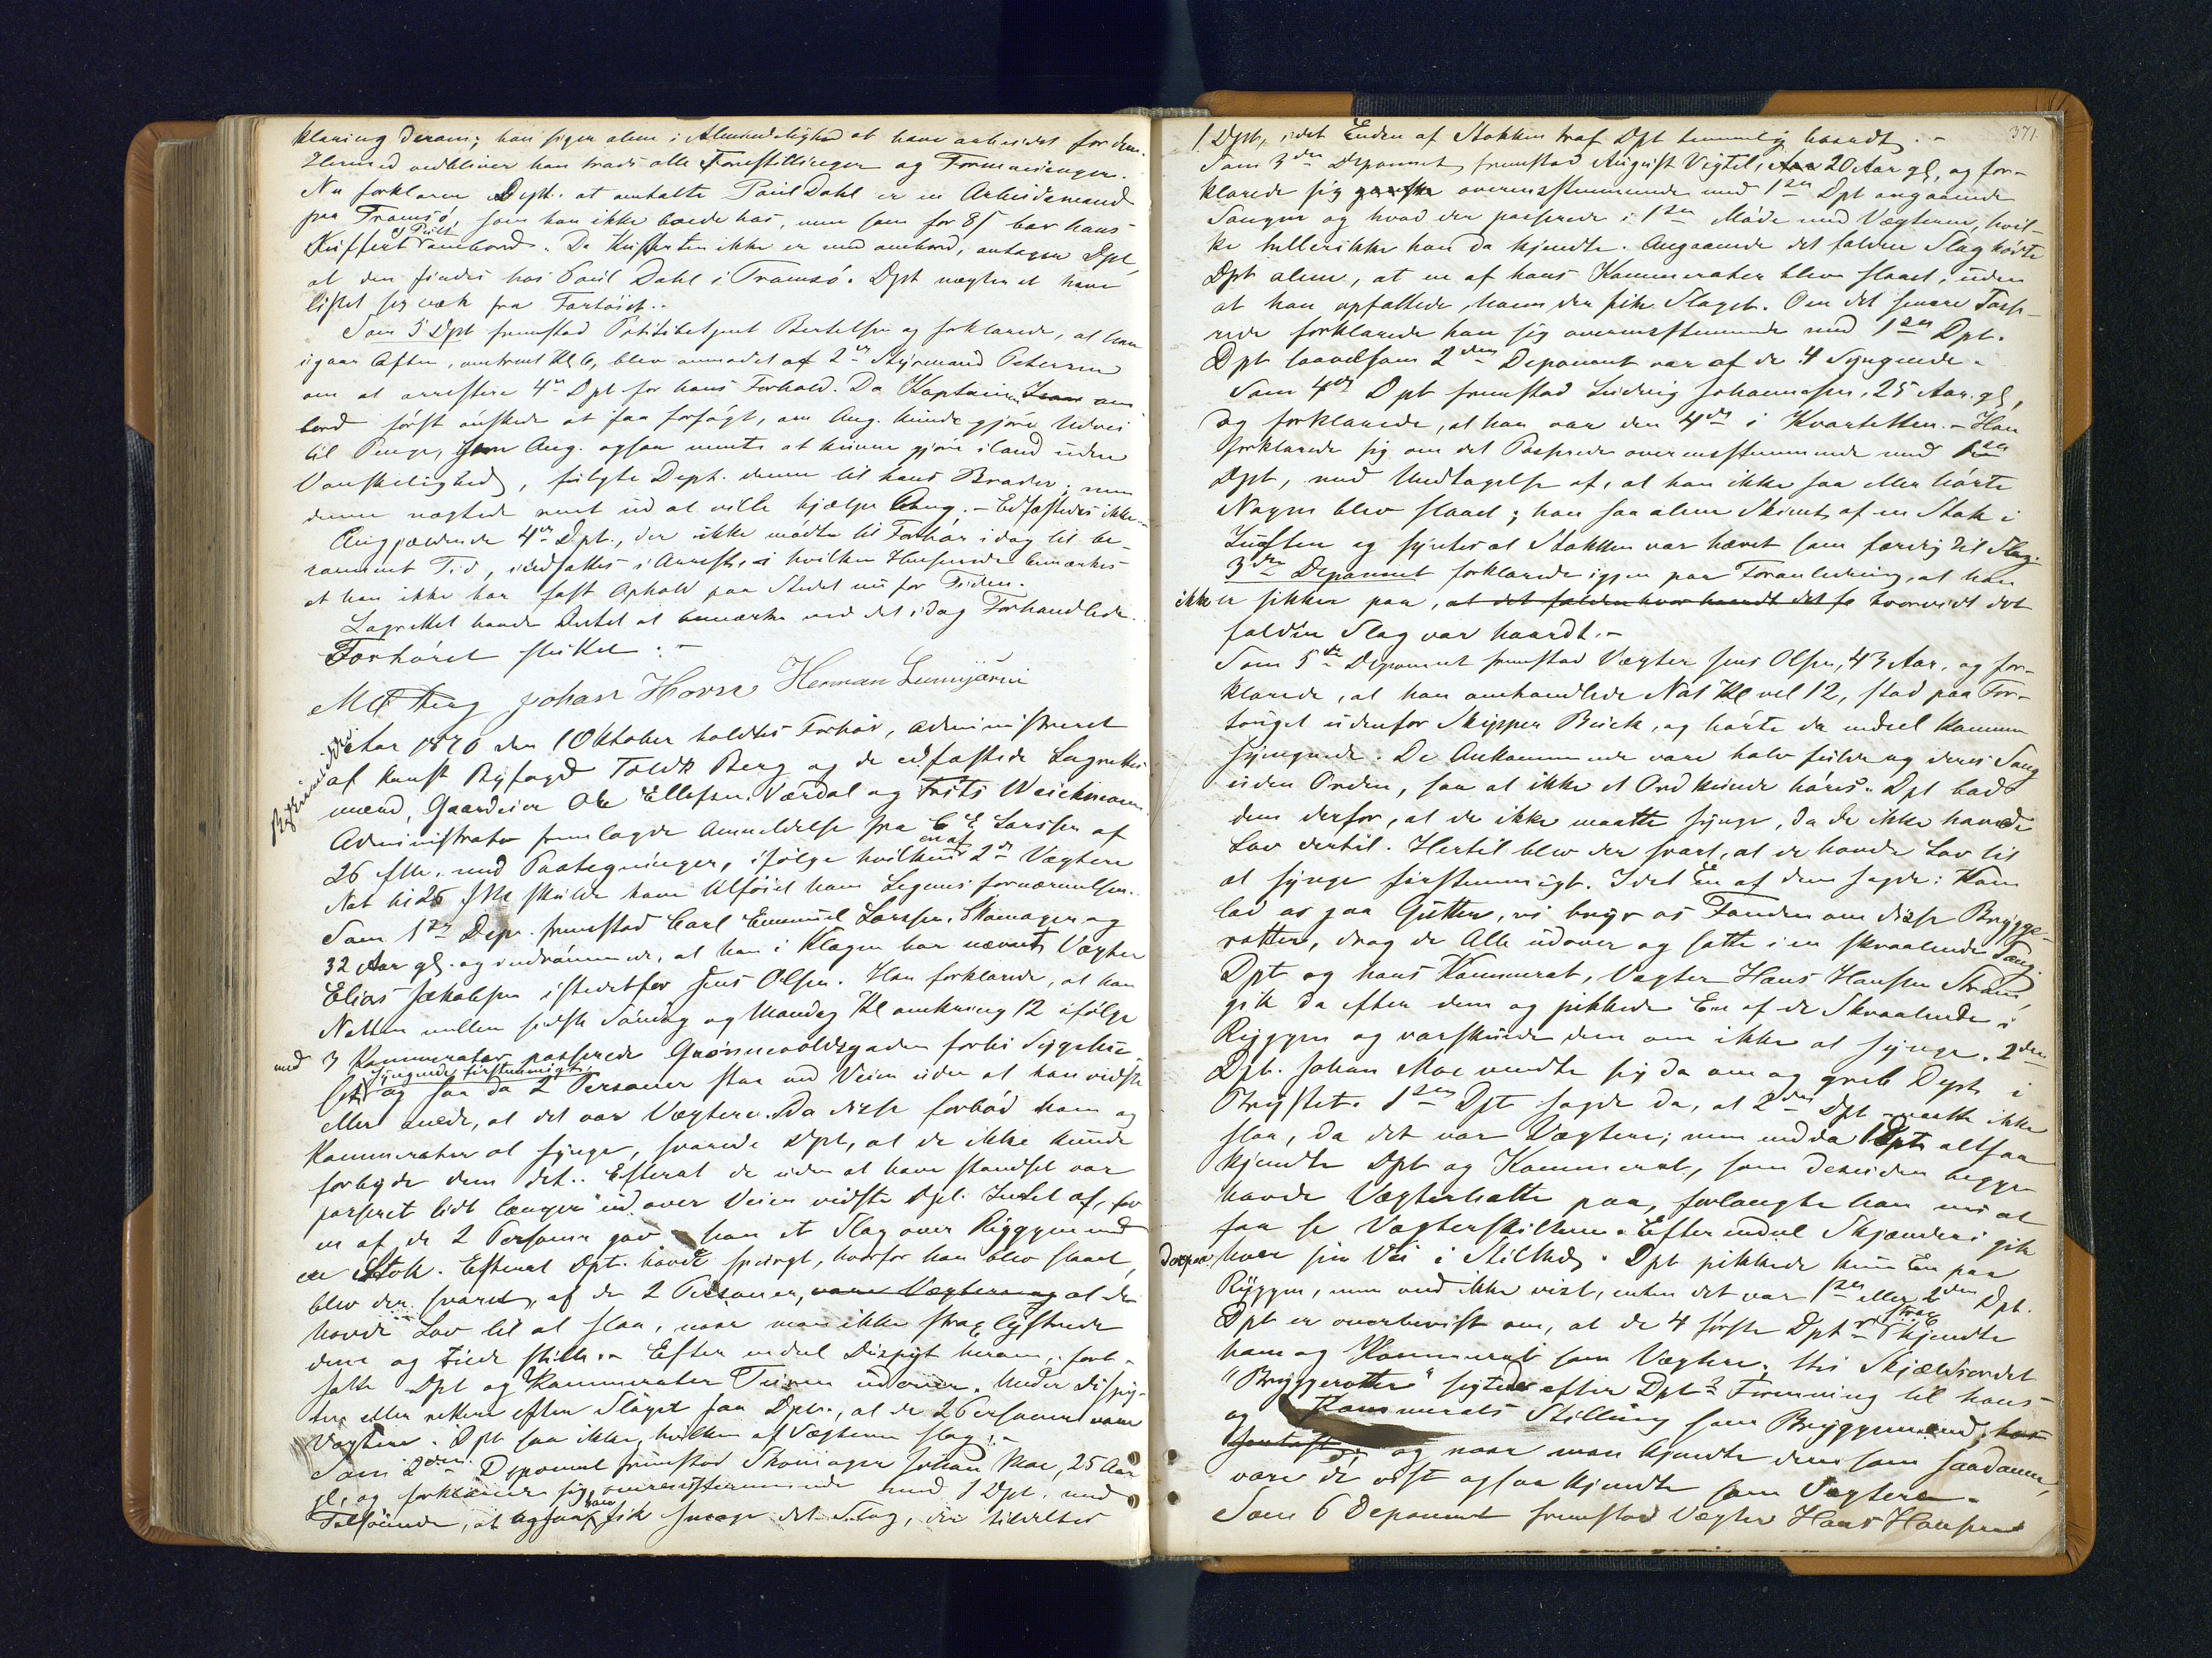 klaring derom; han siger alene i Almindelighed at have arbeidet for dem.
Herved vedbliver han trods alle Forestillinger og Formaninger.
Nu forklarer Dept. at omtalte Paul Dahl er en Arbeidsmand
paa Tromsø, som han ikke boede hos, men som for 8 s bar hans
Kuffert ombord. Da Kufferten ikke er med ombord, antager Dpt,
at den findes hos Paul Dahl i Tromsø. Dpt nægter at have
listet sig væk fra Fartøiet.
Som 5 Dpt fremstod Politibetjent Bertelsen og forklarede, at han
igaar Aften, omtrent Kl 6, blev anmodet af 2den Styrmand Petersen
om at arrestere 4de Dpt for hans Forhold. Da Kaptainen om
bord først ønskede at faa forsøgt, om Ang. kunde gjøre Udvei
til Penge, som Ang. ogsaa mente at kunne gjøre iland uden
Vanskelighed, fulgte Dept. denne til hans Broder; men
denne nægtede rent ud at ville hjælpe Ang. – Edfæstedes ikke. –
Angjældende 4de Dpt., der ikke mødte til Forhør idag til be-
rammet Tid, indsattes i Arresten, i hvilken Henseende bemærkes
at han ikke har fast Ophold paa Stedet nu for Tiden.
Lagrettet havde Intet at bemærke ved det idag Forhandlede.
Forhøret sluttet. –
Johan Hovse Herman
Aar 1876 den 1 Oktober holdtes Forhør, administreret
af konst Byfoged Toldk Berg og de edfæstede Lagrettes
mænd, Gaardeier Ole Ellefsen Værdal og Frits Weickmann
Administrator fremlagde Anmeldelse fra C E Larssen af
26 f.M. med Paategninger, ifølge hvilken en af 2de Vægtere
Nat til 25 f.M. skulde have tilføiet ham Legems fornærmelser.
Som 1ste Dep. fremstod Carl Emanuel Larssen, Skomager og
32 Aar gl. og indrømmede, at han i Klagen har nævnt Vægter
Elias Jakobsen istedetfor Jens Olsen. Han forklarede, at han
Natten mellem sidste Søndag og Mandag Kl omkring 12 ifølge
med 3 Kammerater passerede Grønnevoldsgaden forbi Sygehu
set syngende firstemmigt og saa da 2 Personer staa ved Veien uden at han vidste
eller saae, at det var Vægtere. Da disse forbød ham og
Kammerater at synge, svarede Dpt, at de ikke kunde
forbyde dem det. Efterat de uden at have standset var
passeret lidt længer ud over Veien vidste Dpt. Intet af, før
en af de 2 Personer gav ham et Slag over Ryggen med
en Stok. Efterat Dpt. havde spurgt, hvorfor han blev slaaet,
blev der svaret, af de 2 Personer, vare Vægtere og at de
havde Lov til at slaa, naar man ikke strax lystrede
dem og tiede stille. – Efter endeel Disput herom, fort-
satte Dpt og Kammerater Turen udover. Under Dispu-
ten eller rettere efter Slaget saa Dpt., at de 2 Personer vare
Vægtere. Dpt saa ikke, hvilken af Vægterne slog. –
Som 2den Deponent fremstod Skomager Johan Moe, 25 Aar
gl, og forklarede sig overensstemmende med 1 Dpt. med
Tilføiende, at ogsaa han fik smage det Slag, der tildeltes
371
1 Dpt, idet Enden af Stokken traf Dpt temmelig haardt. –
Som 3die Deponent fremstod August Vigtel, 20 Aar gl, og for-
klarede sig ganske overensstemmende med 1ste Dpt angaaende
Sangen og hvad der passerede i 1ste Møde med Vægterne, hvil-
ke hellerikke han da kjendte. Angaaende det faldne Slag hørte
Dpt alene, at en af hans Kammerater blev slaaet, uden
at han opfattede, hvem der fik Slaget. Om det senere Pass-
rede forklarede han sig overensstemmende med 1ste Dpt.
Dpt saavelsom 2den Deponent var af de 4 Syngende.
Som 4de Dpt fremstod Ludvig Johannesen, 25 Aar gl,
og forklarede, at han var den 4de i Kvartetten. – Han
forklarede sig om det Passerede overensstemmende med 1ste
Dpt, med Undtagelse af, at han ikke saa eller hørte
Nogen blev slaaet; han saa alene Skimt af en Stok i
Luften og syntes at Stokken var hævet som færdig til Slag.
3die Deponent forklarede igjen paa Foranledning, at han
ikke er sikker paa, at det faldne hvor haardt det fa hvorvidt det
faldne Slag var haardt. –
Som 5te Deponent fremstod Vægter Jens Olsen, 43 Aar, og for-
klarede, at han omhandlede Nat Kl vel 12, stod paa For-
touget udenfor Skipper Buck, og hørte da endeel komme
syngende. De Ankommende vare halv fulde og deres Sang
uden Orden, saa at ikke et Ord kunde høres. Dpt bad
dem derfor, at de ikke maatte synge, da de ikke havde
Lov dertil. Hertil blev der svart, at de havde Lov til
at synge firstemmigt. Idet En af dem sagde: Kom
lad os gaa Gutter, vi bryr os Fanden om disse Brygge-
rotter, drog de Alle udover og satte i en skraalende Sang.
Dpt og hans Kammerat, Vægter Hans Hansen Strøm,
gik da efter dem og pikkede En af de Skraalende i
Ryggen og varskuede dem om ikke at synge. 2den
Dpt. Johan Moe vendte sig da om og greb Dept i
Brystet. 1ste Dpt sagde da, at 2den Dpt maatte ikke
slaa, da det var Vægtere; men endda 1 Dpt altsaa
kjendte Dpt og Kammerat, som desuden begge
havde Vægterhatte paa, forlangte han nu at
faa se Vægterskiltene. Efter endeel Skjænderi gik
derpaa hver sin Vei i Stilhed. Dpt pikkede kun En paa
Ryggen, men ved ikke vist, enten det var 1ste eller 2den Dpt.
Dpt er overbevist om, at de 4 første Dptr strax kjendte
ham og Kammerat som Vægtere. Thi Skjældsordet
"Bryggerotter" sigtede efter Dpts Formening til hans
og Kammerats Stilling som Bryggemænd,
og naar man kjendte dem som saadanne,
vare de vist ogsaa kjendte som Vægtere. –
Som 6 Deponent fremstod Vægter Hans Hansen